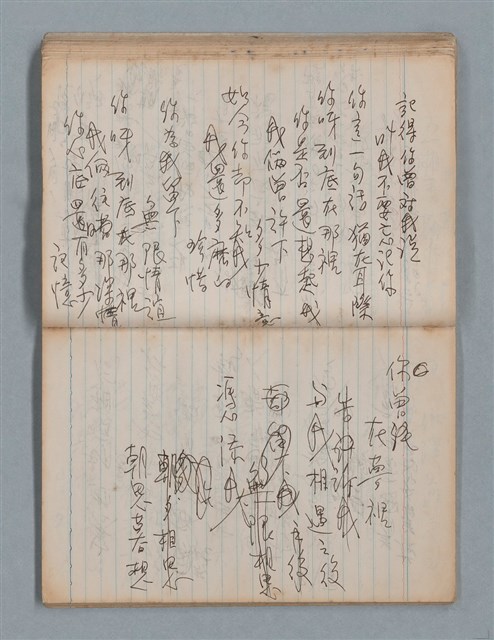 記得你曾對我說
叫我不要忘記你
你這一句話猶在耳際
你呀到底在那裡
你是否還想起我
我倆曾許下
多少情意
如今你却不在
我還多麼的
珍惜
你為我留下
無限情誼
你呀到底在那裡
我倆往昔那深情
你心底還有多少
記憶
你曾經
在夢裡
告訴我
与我相遇之後
都
無限相思
憑添
朝夕相思
朝思暮想